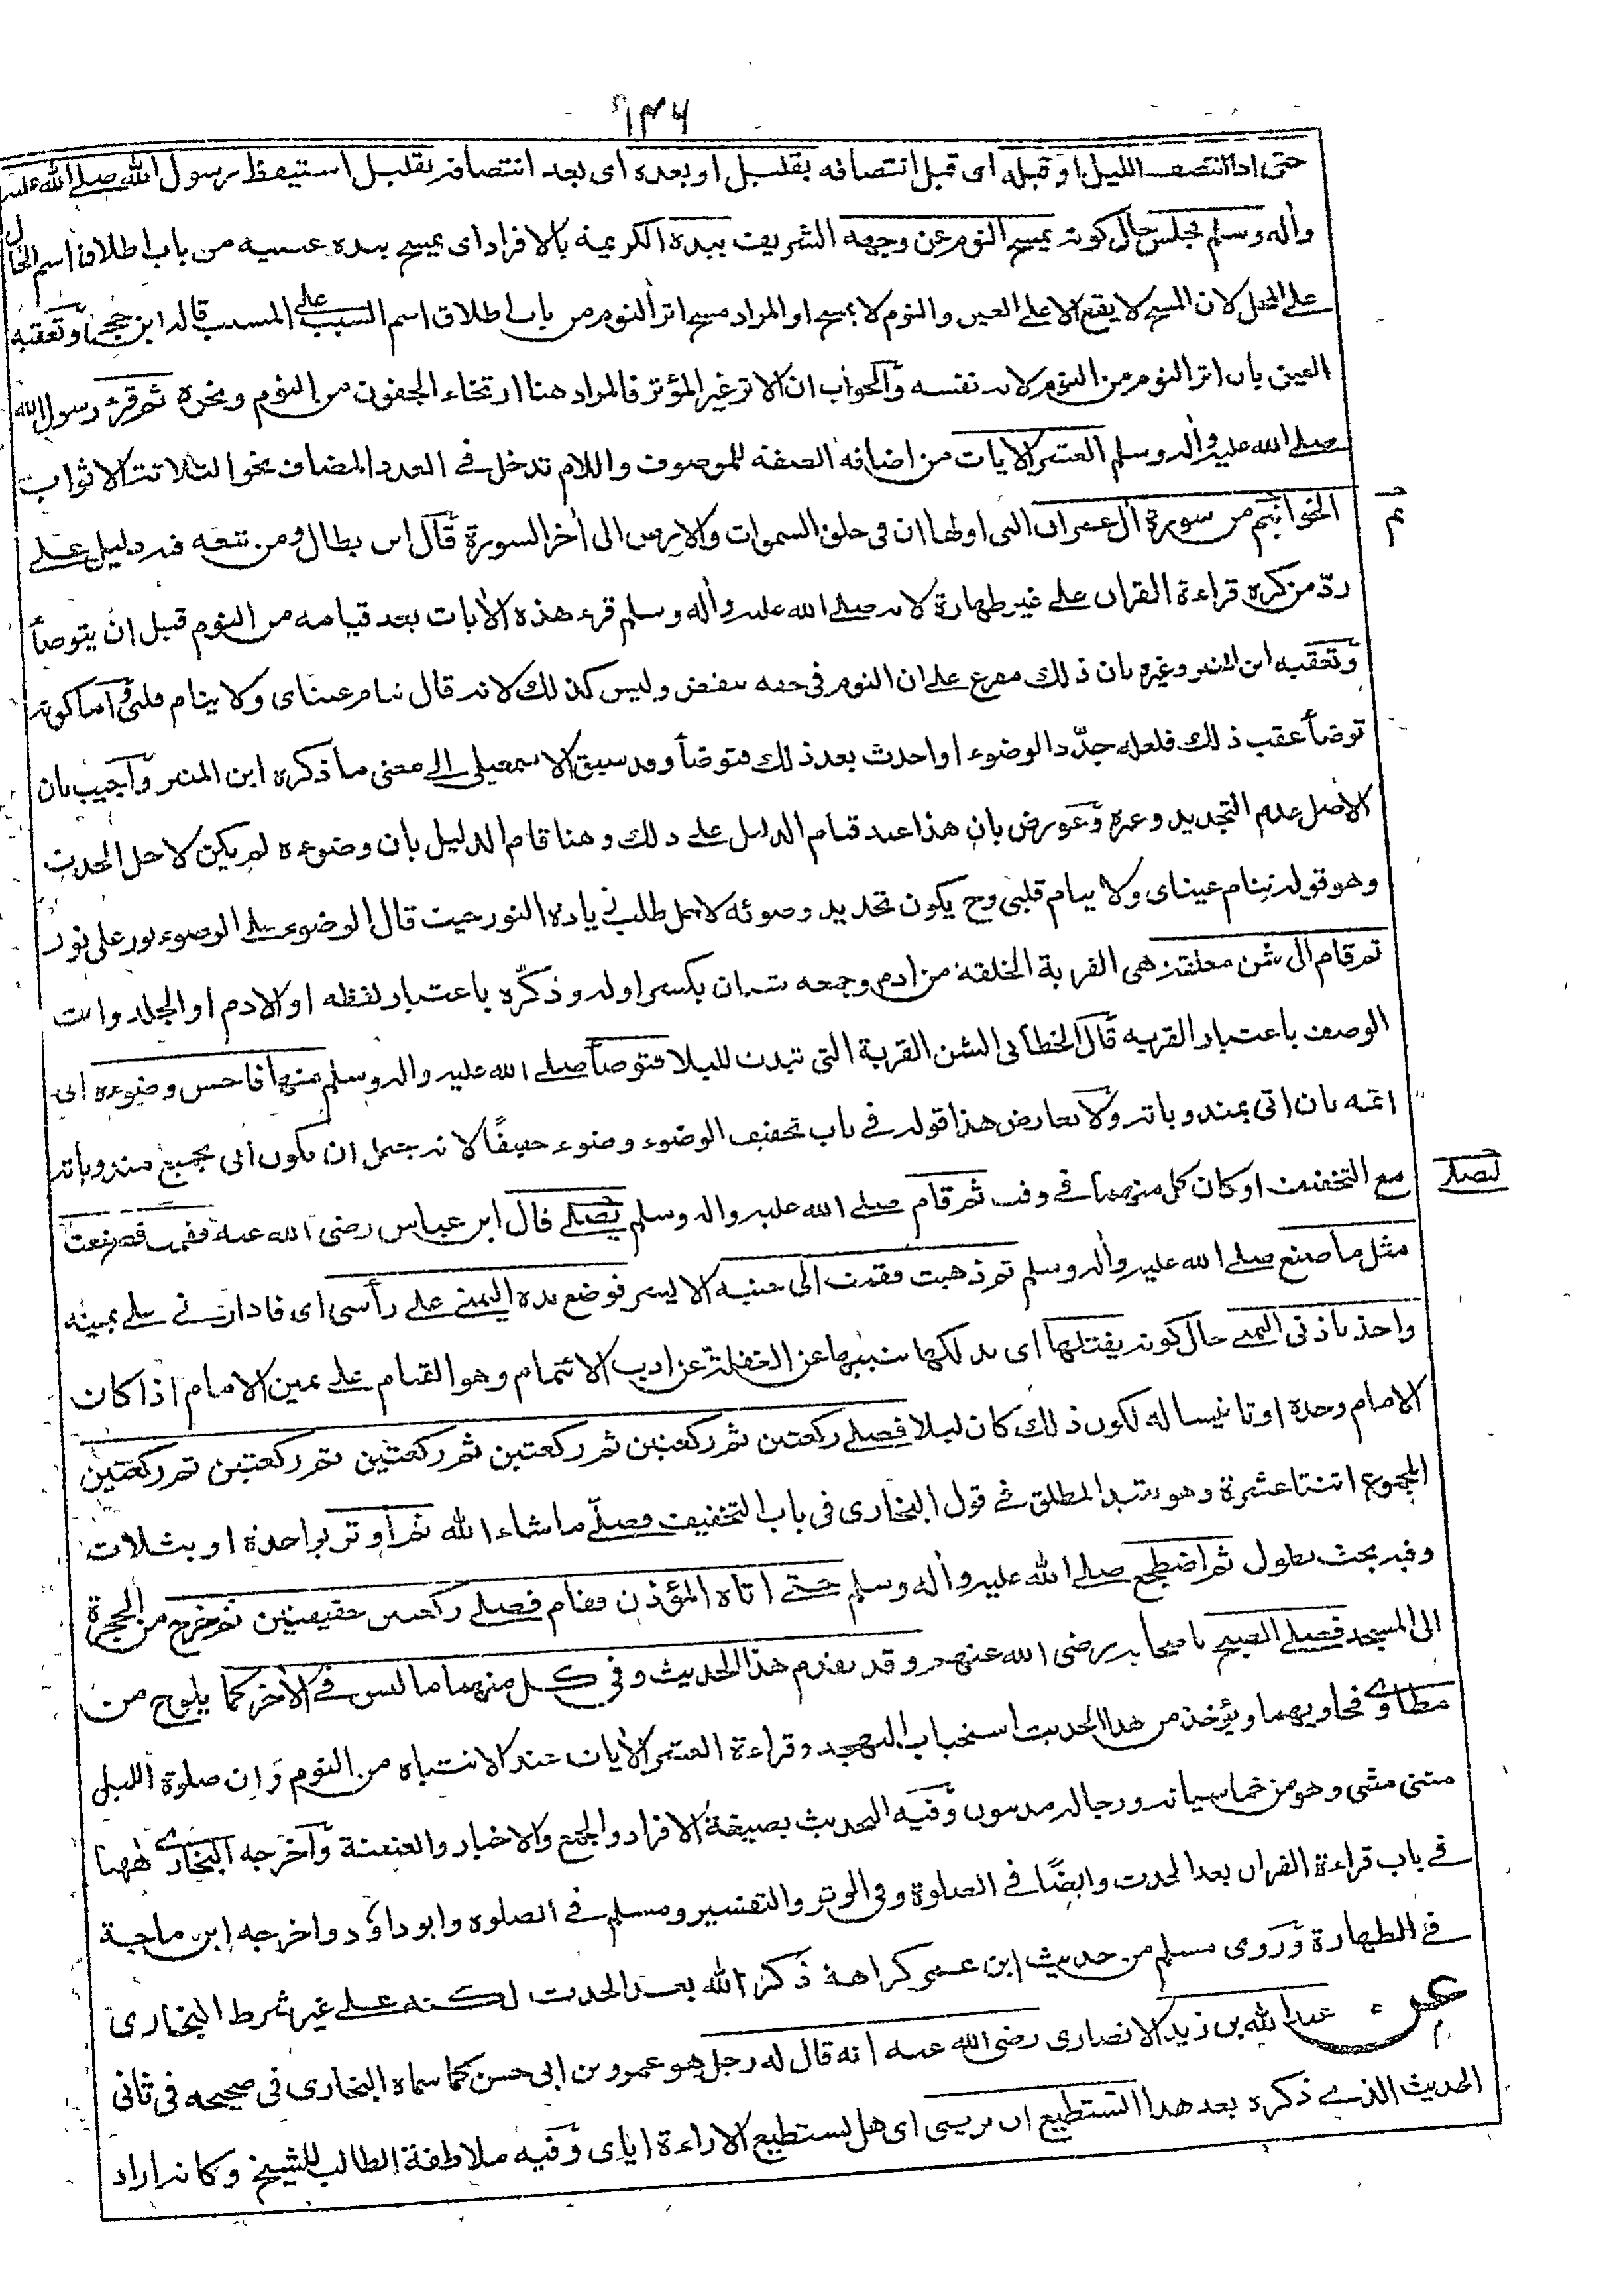 ١٣٦
حتى اذا انتصف الليل او قبله اى قبل انتصافه بقليل او بعده اى بعد انتصافه بقليل استيقظ رسول الله صلے الله عليه
واٰله وسلم فجلس حال كونه يمسح النوم عن وجهه الشريف بيده الكريمة بالافراد اى يمسح بيده عينيه من باب اطلاق اسم الحال
علے المحل لان المسح لا يقع الا علے العين والنوم لا يمسح او المراد مسح اثر النوم من باب اطلاق اسم السبب علے المسبب قاله ابن حجر وتعقبه
العينى بان اثر النوم من النوم لانه نفسه واُجواب ان الاثر غير المؤثر فالمراد هنا ارتخاء الجفون من النوم ونحوه ثم قرء رسول الله
صلے الله عليه واٰله وسلم العشر الايات من اضافة الصفة للموصوف واللام تدخل فے العدد المضاف نحو الثلاثة الاثواب
الخواتيم من سورة اٰل عمران التى اولها ان فى خلق السموات والارض الى اٰخر السورة قال ابن بطال ومن تبعه فيه دليل علے
ردّ من كره قراءة القران علے غير طهارة لانه صلے الله عليه واٰله وسلم قرء هذه الاٰيات بعد قيامه من النوم قبل ان يتوضأ
وتعقبه ابن المنير وغيره بان ذلك مفرع علے ان النوم فى حقه ينقض وليس كذلك لانه قال تنام عيناى ولا ينام قلبى واما كونه
توضأ عقب ذلك فلعله جدّد الوضوء او احدث بعد ذلك فتوضأ وقد سبق الاسمعيلى الے معنى ما ذكره ابن المنير واجيب بان
الاصل عدم التجديد وغيره وعورض بان هذا عند قيام الدليل علے ذلك وهنا قام الدليل بان وضوءه لم يكن لاجل الحدث
وهو قوله تنام عيناى ولا ينام قلبى وح يكون تجديد وضوئه لاجل طلب زيادة النور حيث قال الوضوء علے الوضوء نور على نور
ثم قام الى شن معلقة هى القربة الخلقة من ادم وجمعه شنان بكسر اوله وذكّره باعتبار لفظه او الادم او الجلد وانث
الوصف باعتبار القربة قال الخطابى الشن القربة التى تبدت للبلا فتوضأ صلے الله عليه واله وسلم منها فاحسن وضوءه اى
اتمه بان اتى بمندوباته ولا يعارض هذا قوله فے باب تخفيف الوضوء وضوء خفيفًا لانه يحتمل ان يكون اتى بجميع مندوباته
مع التخفيف او كان كل منهما فے وقت ثم قام صلے الله عليه واله وسلم يصلے قال ابن عباس رضى الله عنه فقمت فصنعت
مثل ما صنع صلے الله عليه واٰله وسلم ثم ذهبت فقمت الى جنبه الايسر فوضع يده اليمنے علے رأسى اى فادارنے علے يمينه
واخذ باذنى اليمنے حال كونه يفتلها اى يدلكها تنبيها عن الغفلة عن ادب الائتمام وهو القيام علے يمين الامام اذا كان
الامام وحده او تانيسا له لكون ذلك كان ليلا فصلے ركعتين ثم ركعتين ثم ركعتين ثم ركعتين ثم ركعتين ثم ركعتين
المجموع اثنتا عشرة وهو يقيد المطلق فے قول البخارى فى باب التخفيف فصلّے ما شاء الله ثم اوتر بواحدة او بثلاث
وفيه بحث يطول ثم اضطجع صلے الله عليه واٰله وسلم حتے اتاه المؤذن فقام فصلے ركعتين خفيفتين ثم خرج من الحجرة
الى المسجد فصلے الصبح باصحابه رضى الله عنهم وقد تقدم هذا الحديث وفى كل منهما ما ليس فے الاٰخر كما يلوح من
مطاوے فحاويهما ويؤخذ من هذا الحديث استحباب التهجد وقراءة العشر الاٰيات عند الانتباه من النوم وان صلوة الليل
مثنى مثنى وهو من خماسياته ورجاله مدنيون وفيه التحديث بصيغة الافراد والجمع والاخبار والعنعنة واخرجه البخارے ههنا
فے باب قراءة القران بعد الحدث وايضًا فے الصلوة وفى الوتر والتفسير ومسلم فے الصلوة وابو داؤد واخرجه ابن ماجة
فے الطهارة وروى مسلم من حديث ابن عمر كراهة ذكر الله بعد الحدث لكنه علے غير شرط البخارى
عن عبد الله بن زيد الانصارى رضى الله عنه انه قال له رجل هو عمرو بن ابى حسن كما سماه البخارى فى صحيحه فى ثانى
الحديث الذے ذكره بعد هذا اتستطيع ان ترينى اى هل تستطيع الاراءة اياى وفيه ملاطفة الطالب للشيخ وكانه اراد
يصلے